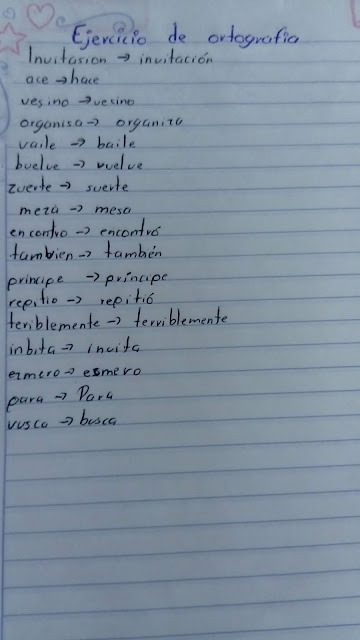 Ejercicio de ortografia
Invitasion → invitación
ace → hace
vesino → vecino
organisa → organiza
vaile → baile
buelve → vuelve
zuerte → suerte
meza → mesa
encontro → encontró
tambien → también
principe → príncipe
repitio → repitió
teriblemente → terriblemente
inbita → invita
ezmero → esmero
para → Para
vusca → busca